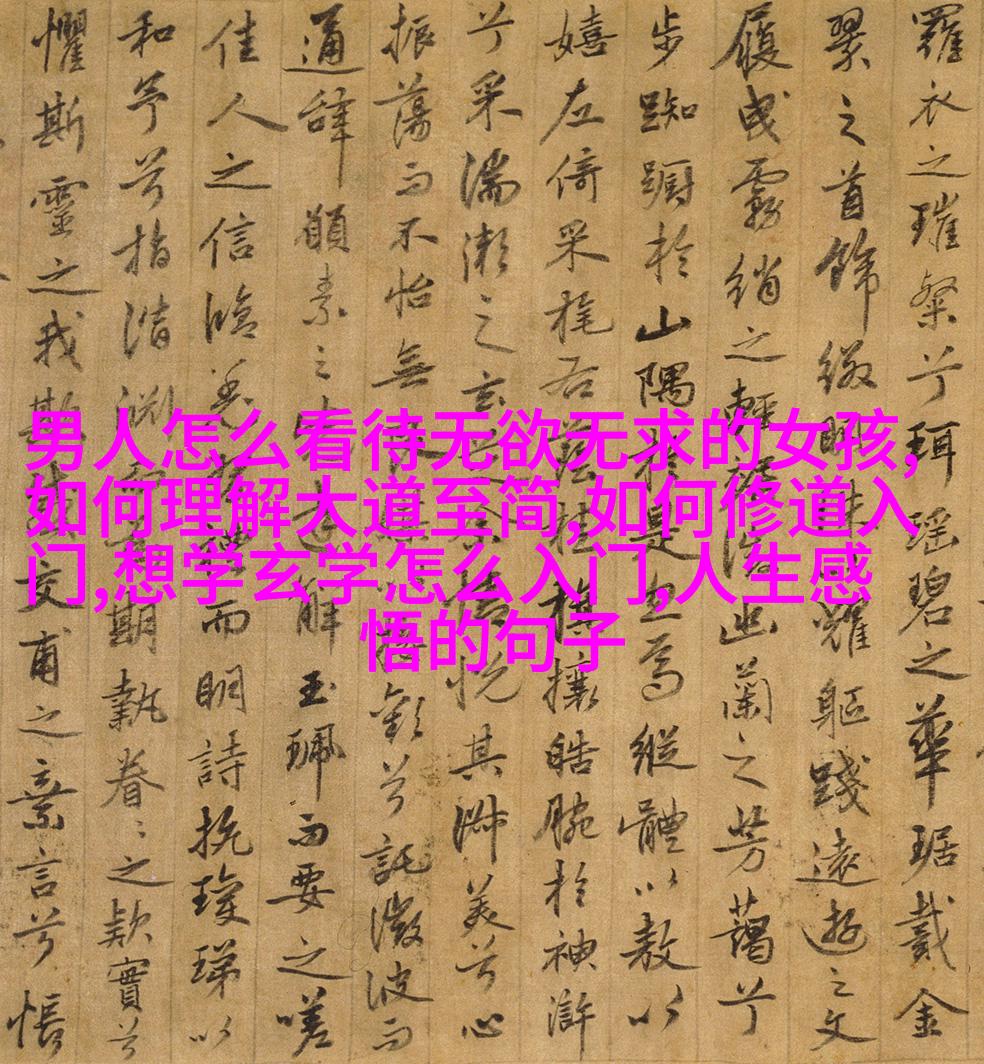 羅衣之璀粲兮珥瑤碧之華琚戴金
翠之首飾綴明珠以耀軀踐遠遊之文
履曳霧綃之輕裾幽蘭之芳藹兮
步踟躕於山隅於是忽焉縱體以敖以
嬉左倚采旄右蔭桂旗攘皓腕於神滸
兮采湍瀨之玄芝余情悅其淑美兮心
振蕩而不怡無良媒以接歡兮託微波而
通辭願素之先達解玉珮而要之嗟
佳人之信脩羌習禮而明詩抗瓊珶以
和予兮指潛淵而為期執眷〻之款實兮
懼斯靈之我欺感交甫之棄言兮悵
男人怎么看待无欲无求的女孩,
如何理解大道至简,如何修道入
门,想学玄学怎么入门,人生感
悟的句子